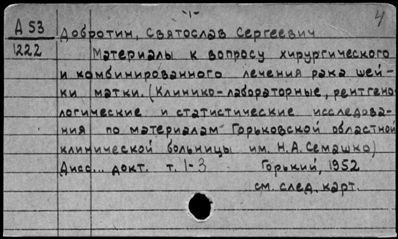 -1-
4
А 53 Добротин, Святослав Сергеевич
1222 Материалы к вопросу хирургического
и комбинированного лечения рака шей-
ки матки. (Клинико-лабораторные, рентгено-
логические и статистические исследова-
ния по материалам Горьковской областной
клинической больницы им. Н.А. Семашко)
Дисс... докт. т. 1-3 Горький, 1952
см. след. карт.